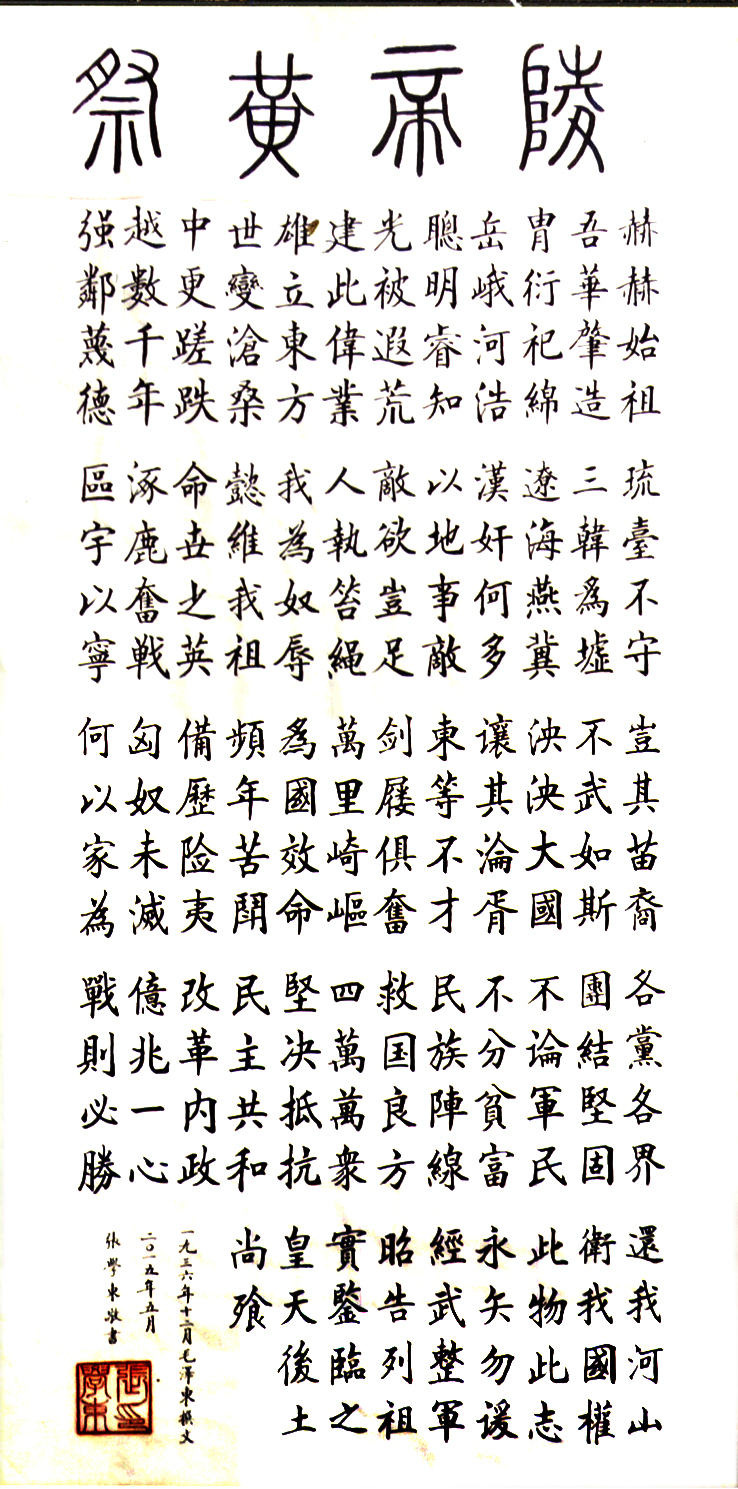 祭黄帝陵
赫赫始祖
吾華肇造
胄衍祀綿
岳峨河浩
聰明睿知
光被遐荒
建此偉業
雄立東方
世變滄桑
中更蹉跌
越數千年
强鄰蔑德
琉臺不守
三韓爲墟
遼海燕冀
漢奸何多
以地事敵
敵欲豈足
人執笞繩
我為奴辱
懿維我祖
命世之英
涿鹿奮戰
區宇以寧
豈其苗裔
不武如斯
泱泱大國
讓其淪胥
東等不才
剑屨俱奮
萬里崎嶇
爲國效命
頻年苦鬪
備歷险夷
匈奴未滅
何以家為
各黨各界
團結堅固
不論軍民
不分貧富
民族陣線
救国良方
四萬萬衆
堅决抵抗
民主共和
改革内政
億兆一心
戰則必勝
還我河山
衛我國權
此物此志
永矢勿谖
經武整軍
昭告列祖
實鑒臨之
皇天後土
尚飨
一九三六年十二月毛澤東撰文
二〇一五年五月
張學東敬書
張學東印